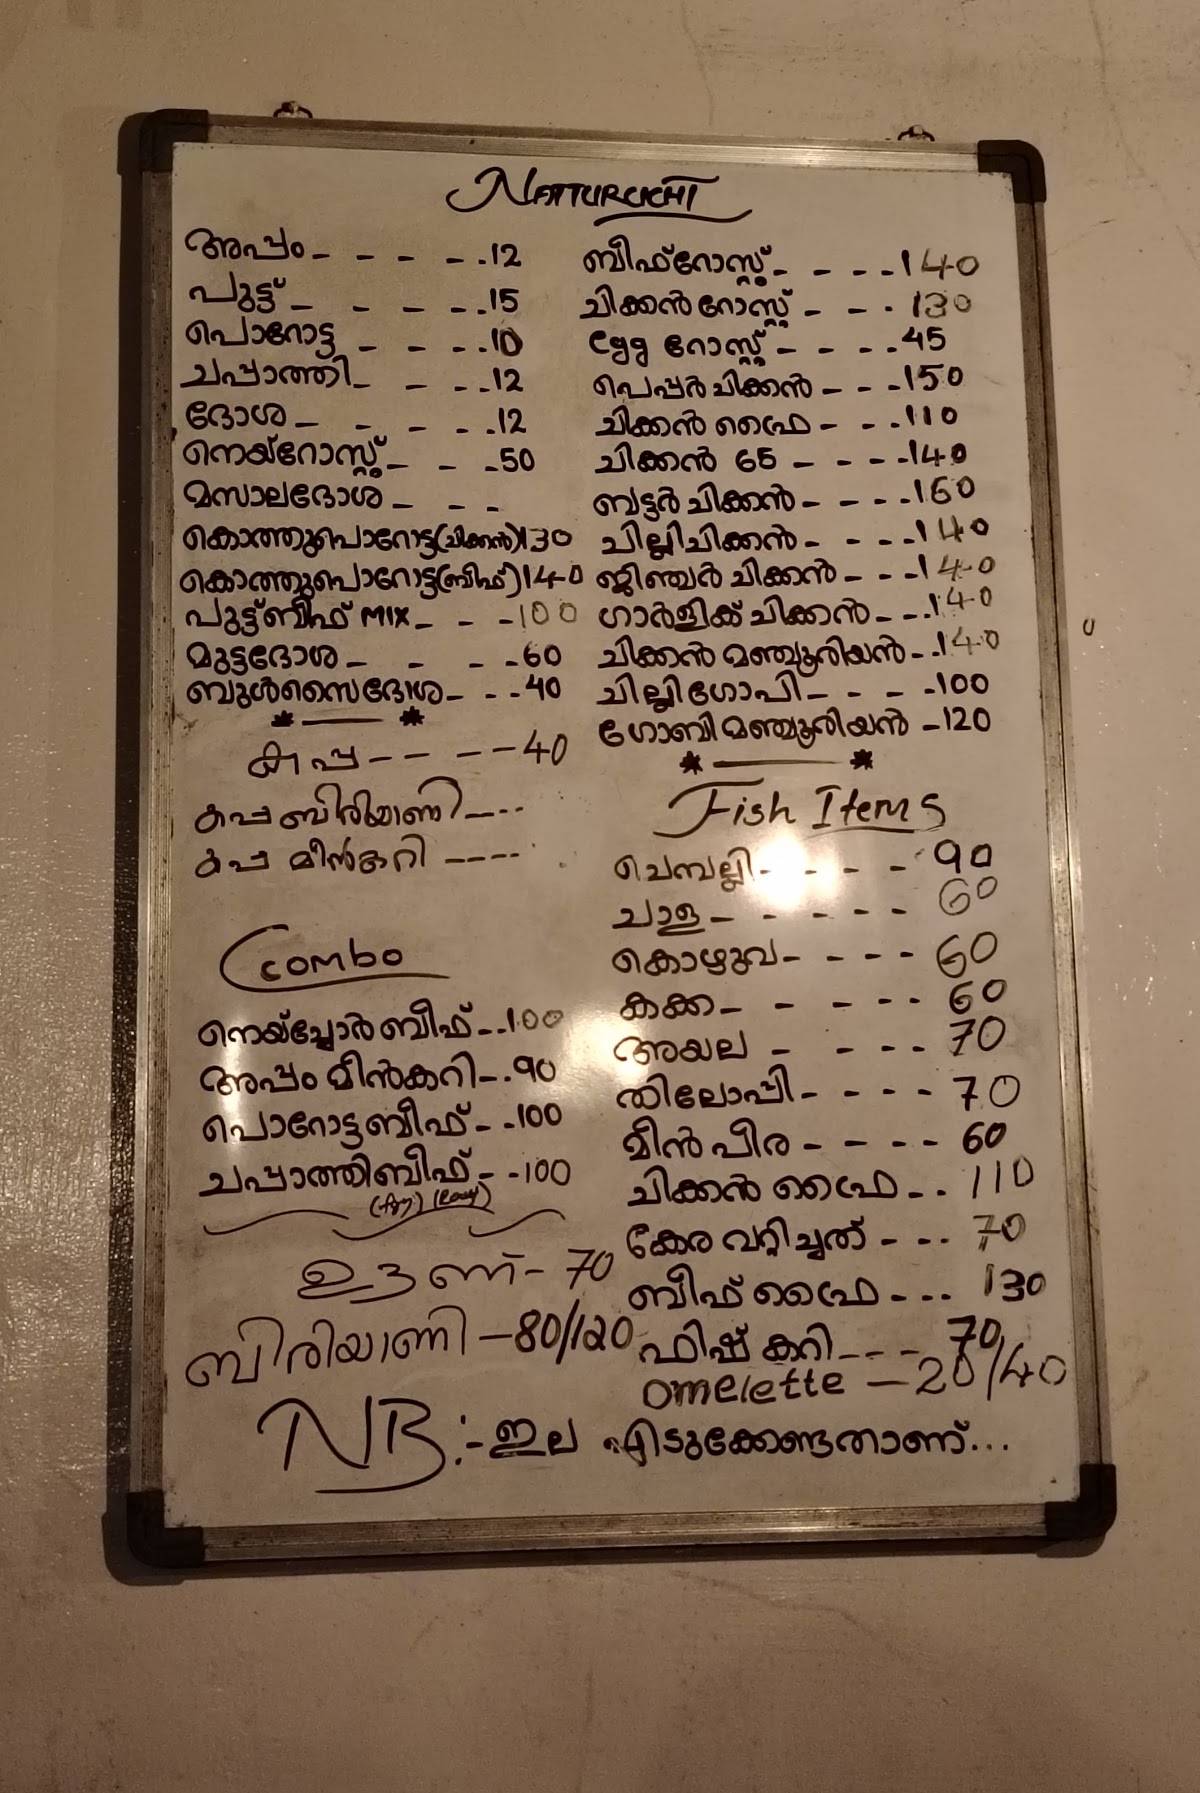 NATTURUCHI
അപ്പം - - - - - .12
പുട്ട് - - - - - .15
പൊറോട്ട - - - - .10
ചപ്പാത്തി - - - - .12
ദോശ - - - - - .12
നെയ്റോസ്റ്റ് - - - .50
മസാലദോശ - - -
കൊത്തുപൊറോട്ട (ചിക്കൻ) 130
കൊത്തുപൊറോട്ട (ബീഫ്) 140
പുട്ട്ബീഫ് MIX - - - 100
മുട്ടദോശ - - - - .60
ബുൾസൈദോശ - - - .40
കപ്പ - - - - - 40
കപ്പ ബിരിയാണി - - - -
കപ്പ മീൻകറി - - - -
Combo
നെയ്ച്ചോർ ബീഫ് - . . 100
അപ്പം മീൻകറി - . 90
പൊറോട്ട ബീഫ് - - . 100
ചപ്പാത്തി ബീഫ് - - . 100
ഊണ് - 70
ബിരിയാണി - 80/120
ബീഫ്റോസ്റ്റ് - - - - .140
ചിക്കൻറോസ്റ്റ് - - - . 130
egg റോസ്റ്റ് - - - . . 45
പെപ്പർ ചിക്കൻ - - - .150
ചിക്കൻ ഫ്രൈ - - - .110
ചിക്കൻ 65 - - - - .140
ബട്ടർ ചിക്കൻ - - - - .160
ചില്ലിചിക്കൻ - - - - .140
ജിഞ്ചർ ചിക്കൻ - - - .140
ഗാർളിക് ചിക്കാൻ - - - .140
ചിക്കൻ മഞ്ചൂരിയൻ - . .140
ചില്ലിഗോപി - - - - .100
ഗോബി മഞ്ചൂരിയൻ - 120
Fish Items
ചെമ്പല്ലി - - - - - 90
ചാള - - - - - - 60
കൊഴുവ - - - - - 60
കക്ക - - - - - - 60
അയല - - - - - 70
തിലോപ്പി - - - - - 70
മീൻ പീര - - - - - 60
ചിക്കൻ ഫ്രൈ - . . 110
കേര വറ്റിച്ചത് - - - . 70
ബീഫ് ഫ്രൈ - - . . 130
ഫിഷ് കറി - - - - 70
omelette - 20/40
NB :- ഇല എടുക്കേണ്ടതാണ്...